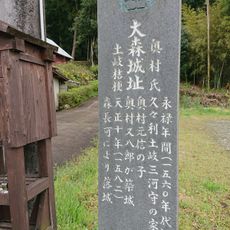 大森城址
奥村氏
土岐桔梗
永禄年間(一五六〇年代)
久々利土岐三河守の家
奥村元広の子
奥村又八郎が築城
天正十年(一五八二)
森長可により落城